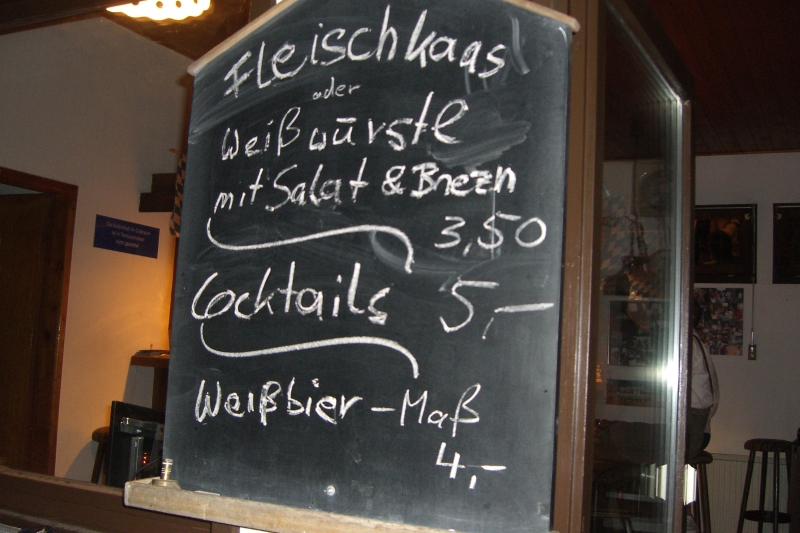 Fleischkaas
oder
Weißwürste
mit Salat & Brezn
3,50
Cocktails 5,-
Weißbier-Maß
4,-